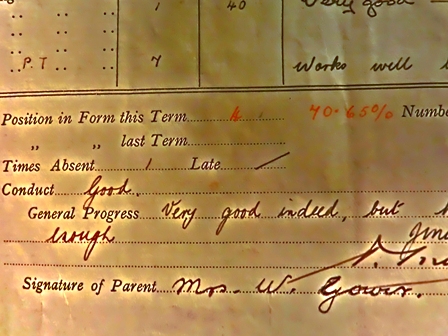 1 40 Very good
P.T 7 Works well
Position in Form this Term 4 70.65% Numbe
" " last Term
Times Absent 1 Late /
Conduct Good.
General Progress Very good indeed, but
Signature of Parent Mrs. W. Gower.